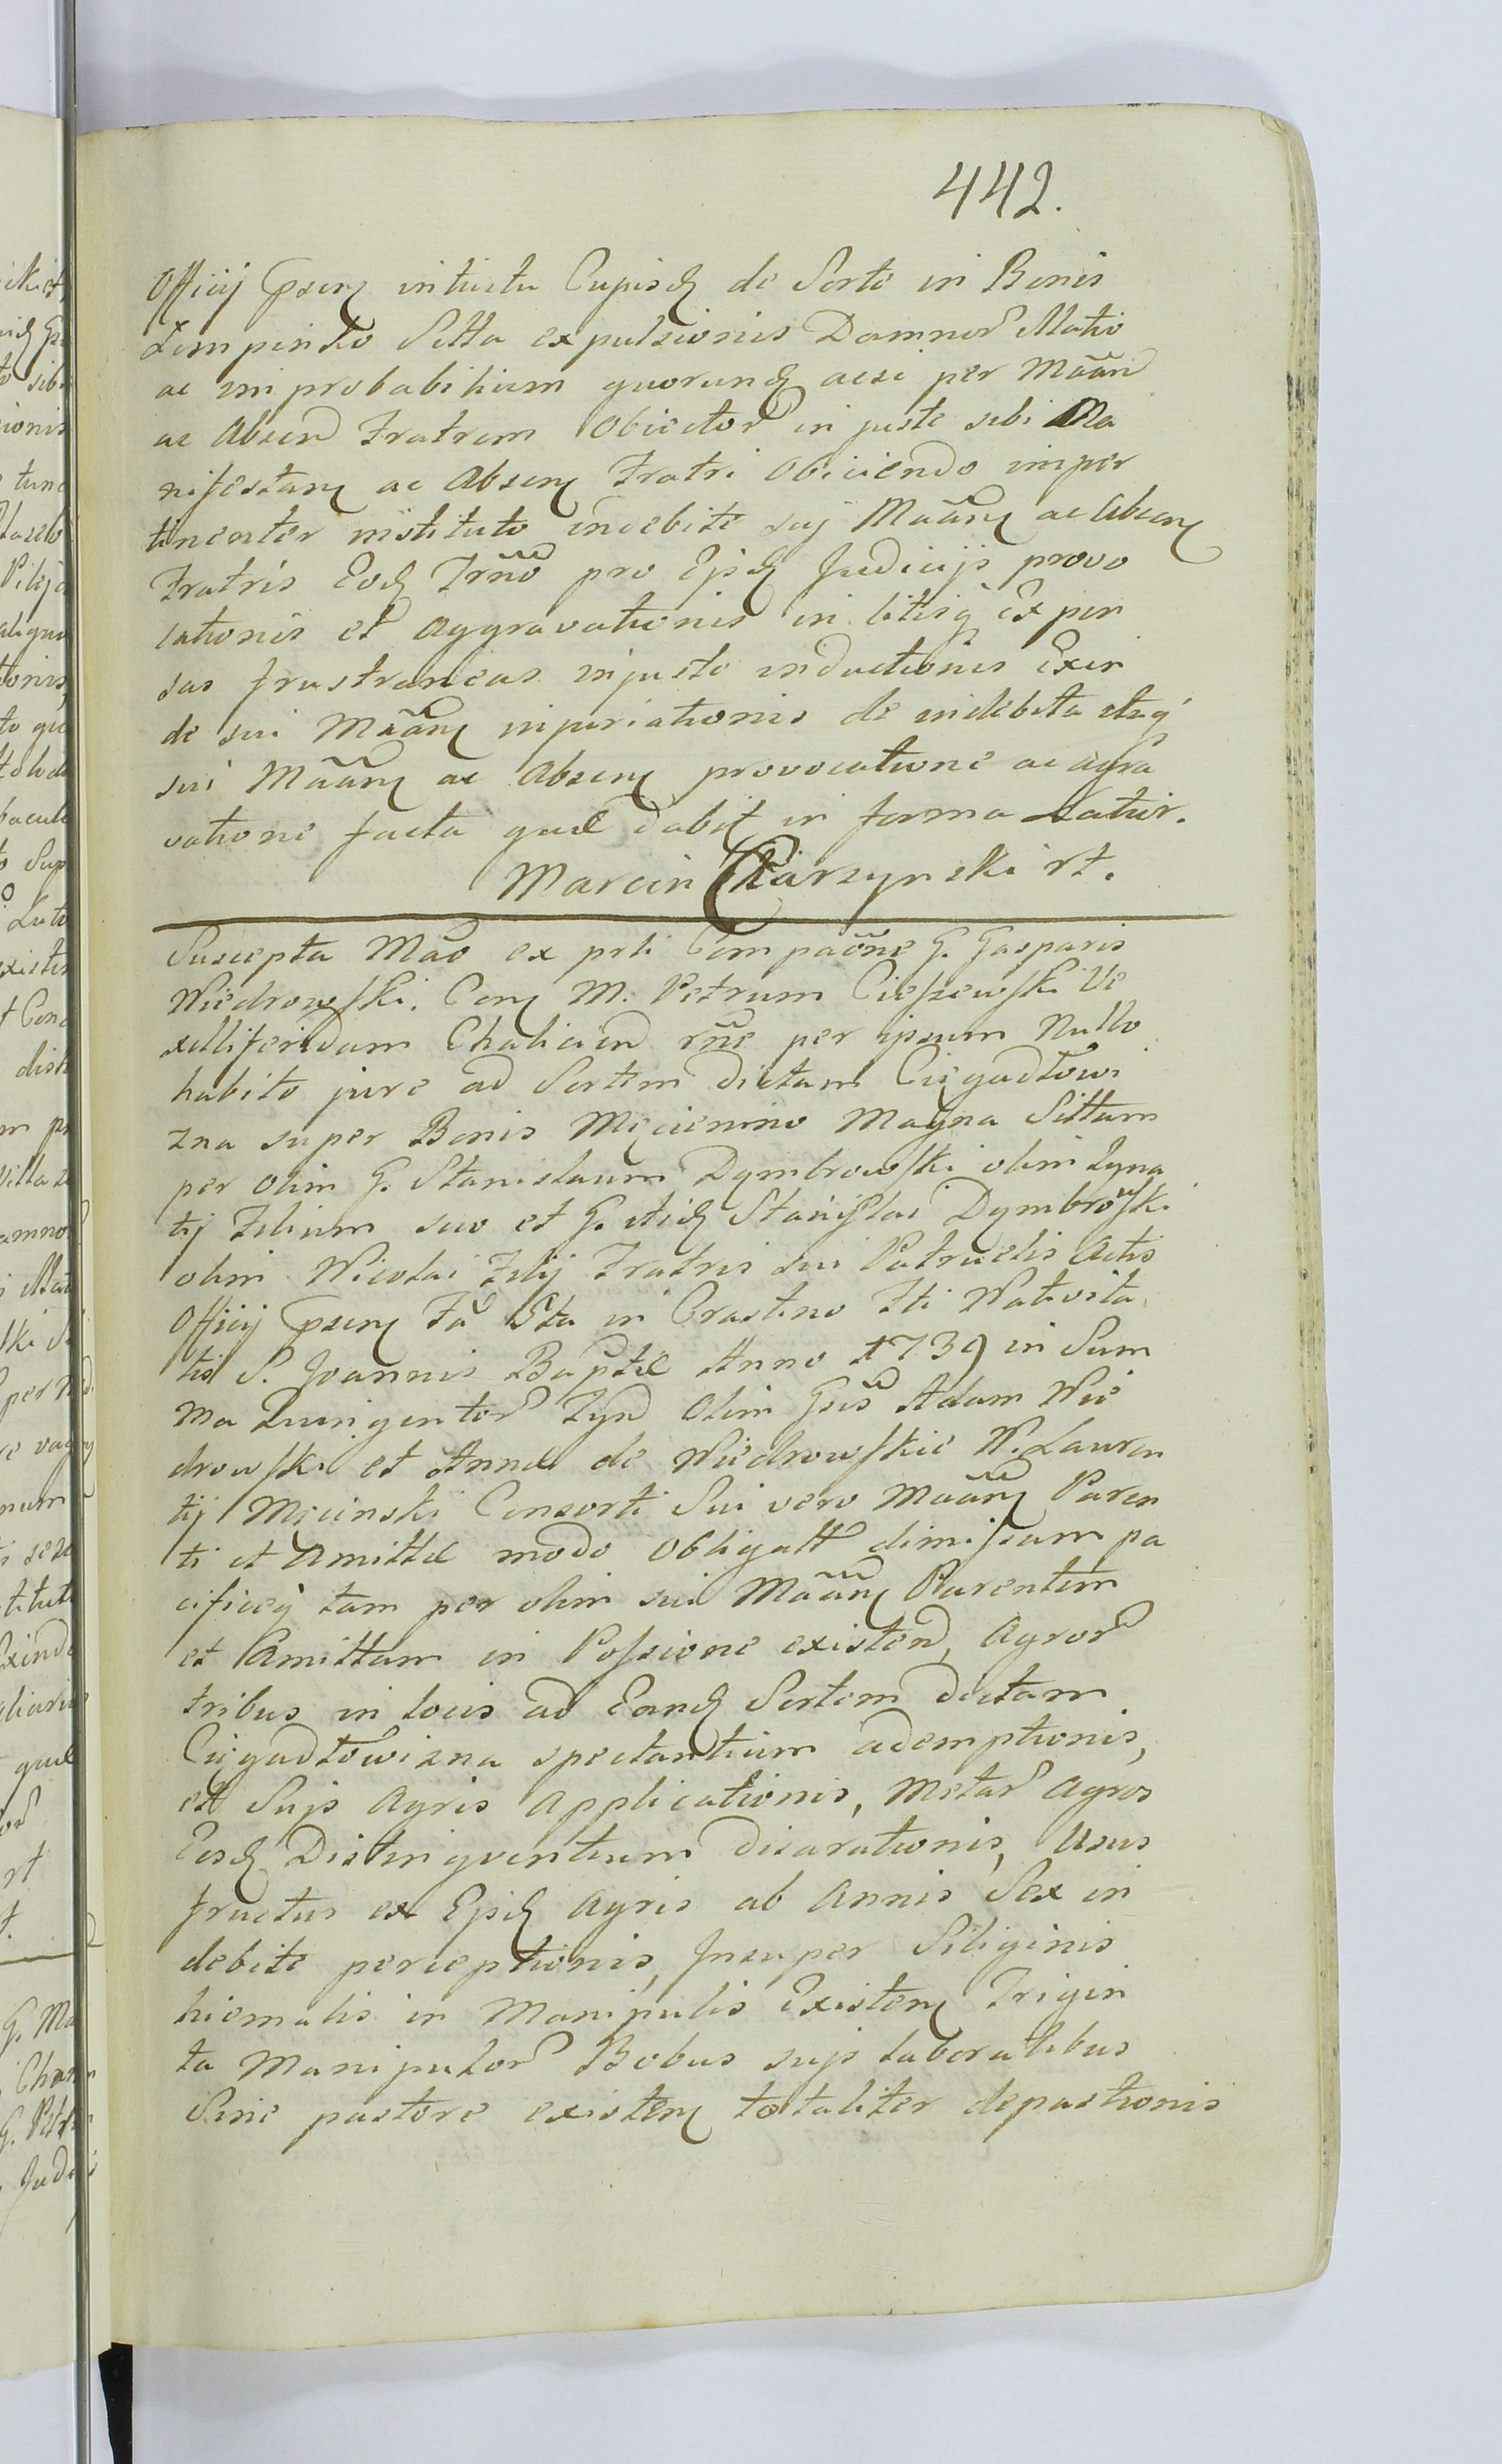 442.
Officij Gsenꝫ intuitu Cujusdꝫ de Sorte in Bonis
Lempinko Sitta expulsionis Damnor Matio
ac improbabilium quorundꝫ acsi per Mãand
ac Absend Fratrem Obiector injuste sibi Ma
nifestanꝫ ac Absenꝫ Fratri Obiiciendo imper
tinenter instituto indebite suj Mãanꝫ ac Absenꝫ
Fratris Eodꝫ Trño pro Ejsdꝫ Judicijs provo
cationis et Aggravationis in litisqꝫ Expen
sas frustraneas injuste inductionis Exin
de sui Mãanꝫ injuriationis de indebita itaqꝫ
sui Mãanꝫ ac Absenꝫ provocatione ac aggra
vatione facta quæ dabit in forma Latior.
Marcin Charzynski rt.
Suscepta Mão ex prti Compaõne G. Gasparis
Wiedrowski. Conꝫ M. Petrum Cieszewski Ve
xilliferidam Chalicien rñe per ipsum Nullo
habito jure ad Sortem dictam Cięgadłowi
zna super Bonis Męciemino Magna Sittam
per olim G. Stanislaum Dymbrowski olim Igna
tij Filium suo et G. itidꝫ Stanislai Dymbrowski
olim Nicolai Filij Fratris sui Patruelis Actis
Officij Gsenꝫ Fã Sta in Crastino Fti Nativita
tis S. Joannis Baptæ Anno 1739 in Sum
ma Quingentor Fynd Olim Gsis Adam Wie
drowski et Annæ de Wiedrowskie N. Lauren
tij Męcinski Consorti Sui vero Mãanꝫ Paren
ti et Amittæ modo obligatt dimissam pa
cificeqꝫ tam per olim sui Mãanꝫ Parentem
et Amittam in Possione existend, Agror
tribus in locis ad Eandꝫ Sortem dictam
Cięgadłowizna spectantium ademptionis,
et Sujs Agris Applicationis, Metar Agros
Eosdꝫ Distingventium disarationis, Usus
fructus ex Ejsdꝫ Agris ab Annis Sex in
debite perceptionis, Insuper Siliginis
hiemalis in Manipulis Existenꝫ Trigin
ta Manipulor Bobus sujs laboralibus
Sine pastore existenꝫ totaliter depastionis